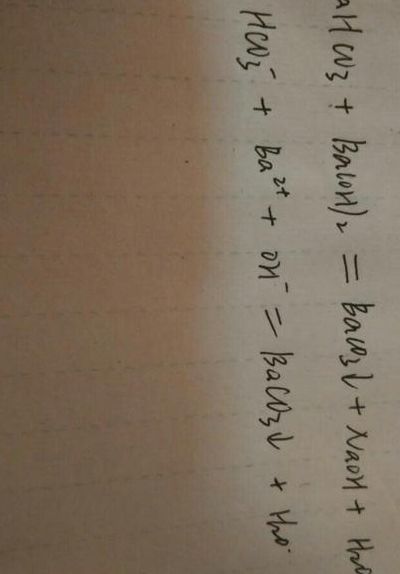 aHCO₃ + Ba(OH)₂ = BaCO₃↓ + NaOH + H₂O
HCO₃⁻ + Ba²⁺ + OH⁻ = BaCO₃↓ + H₂O.